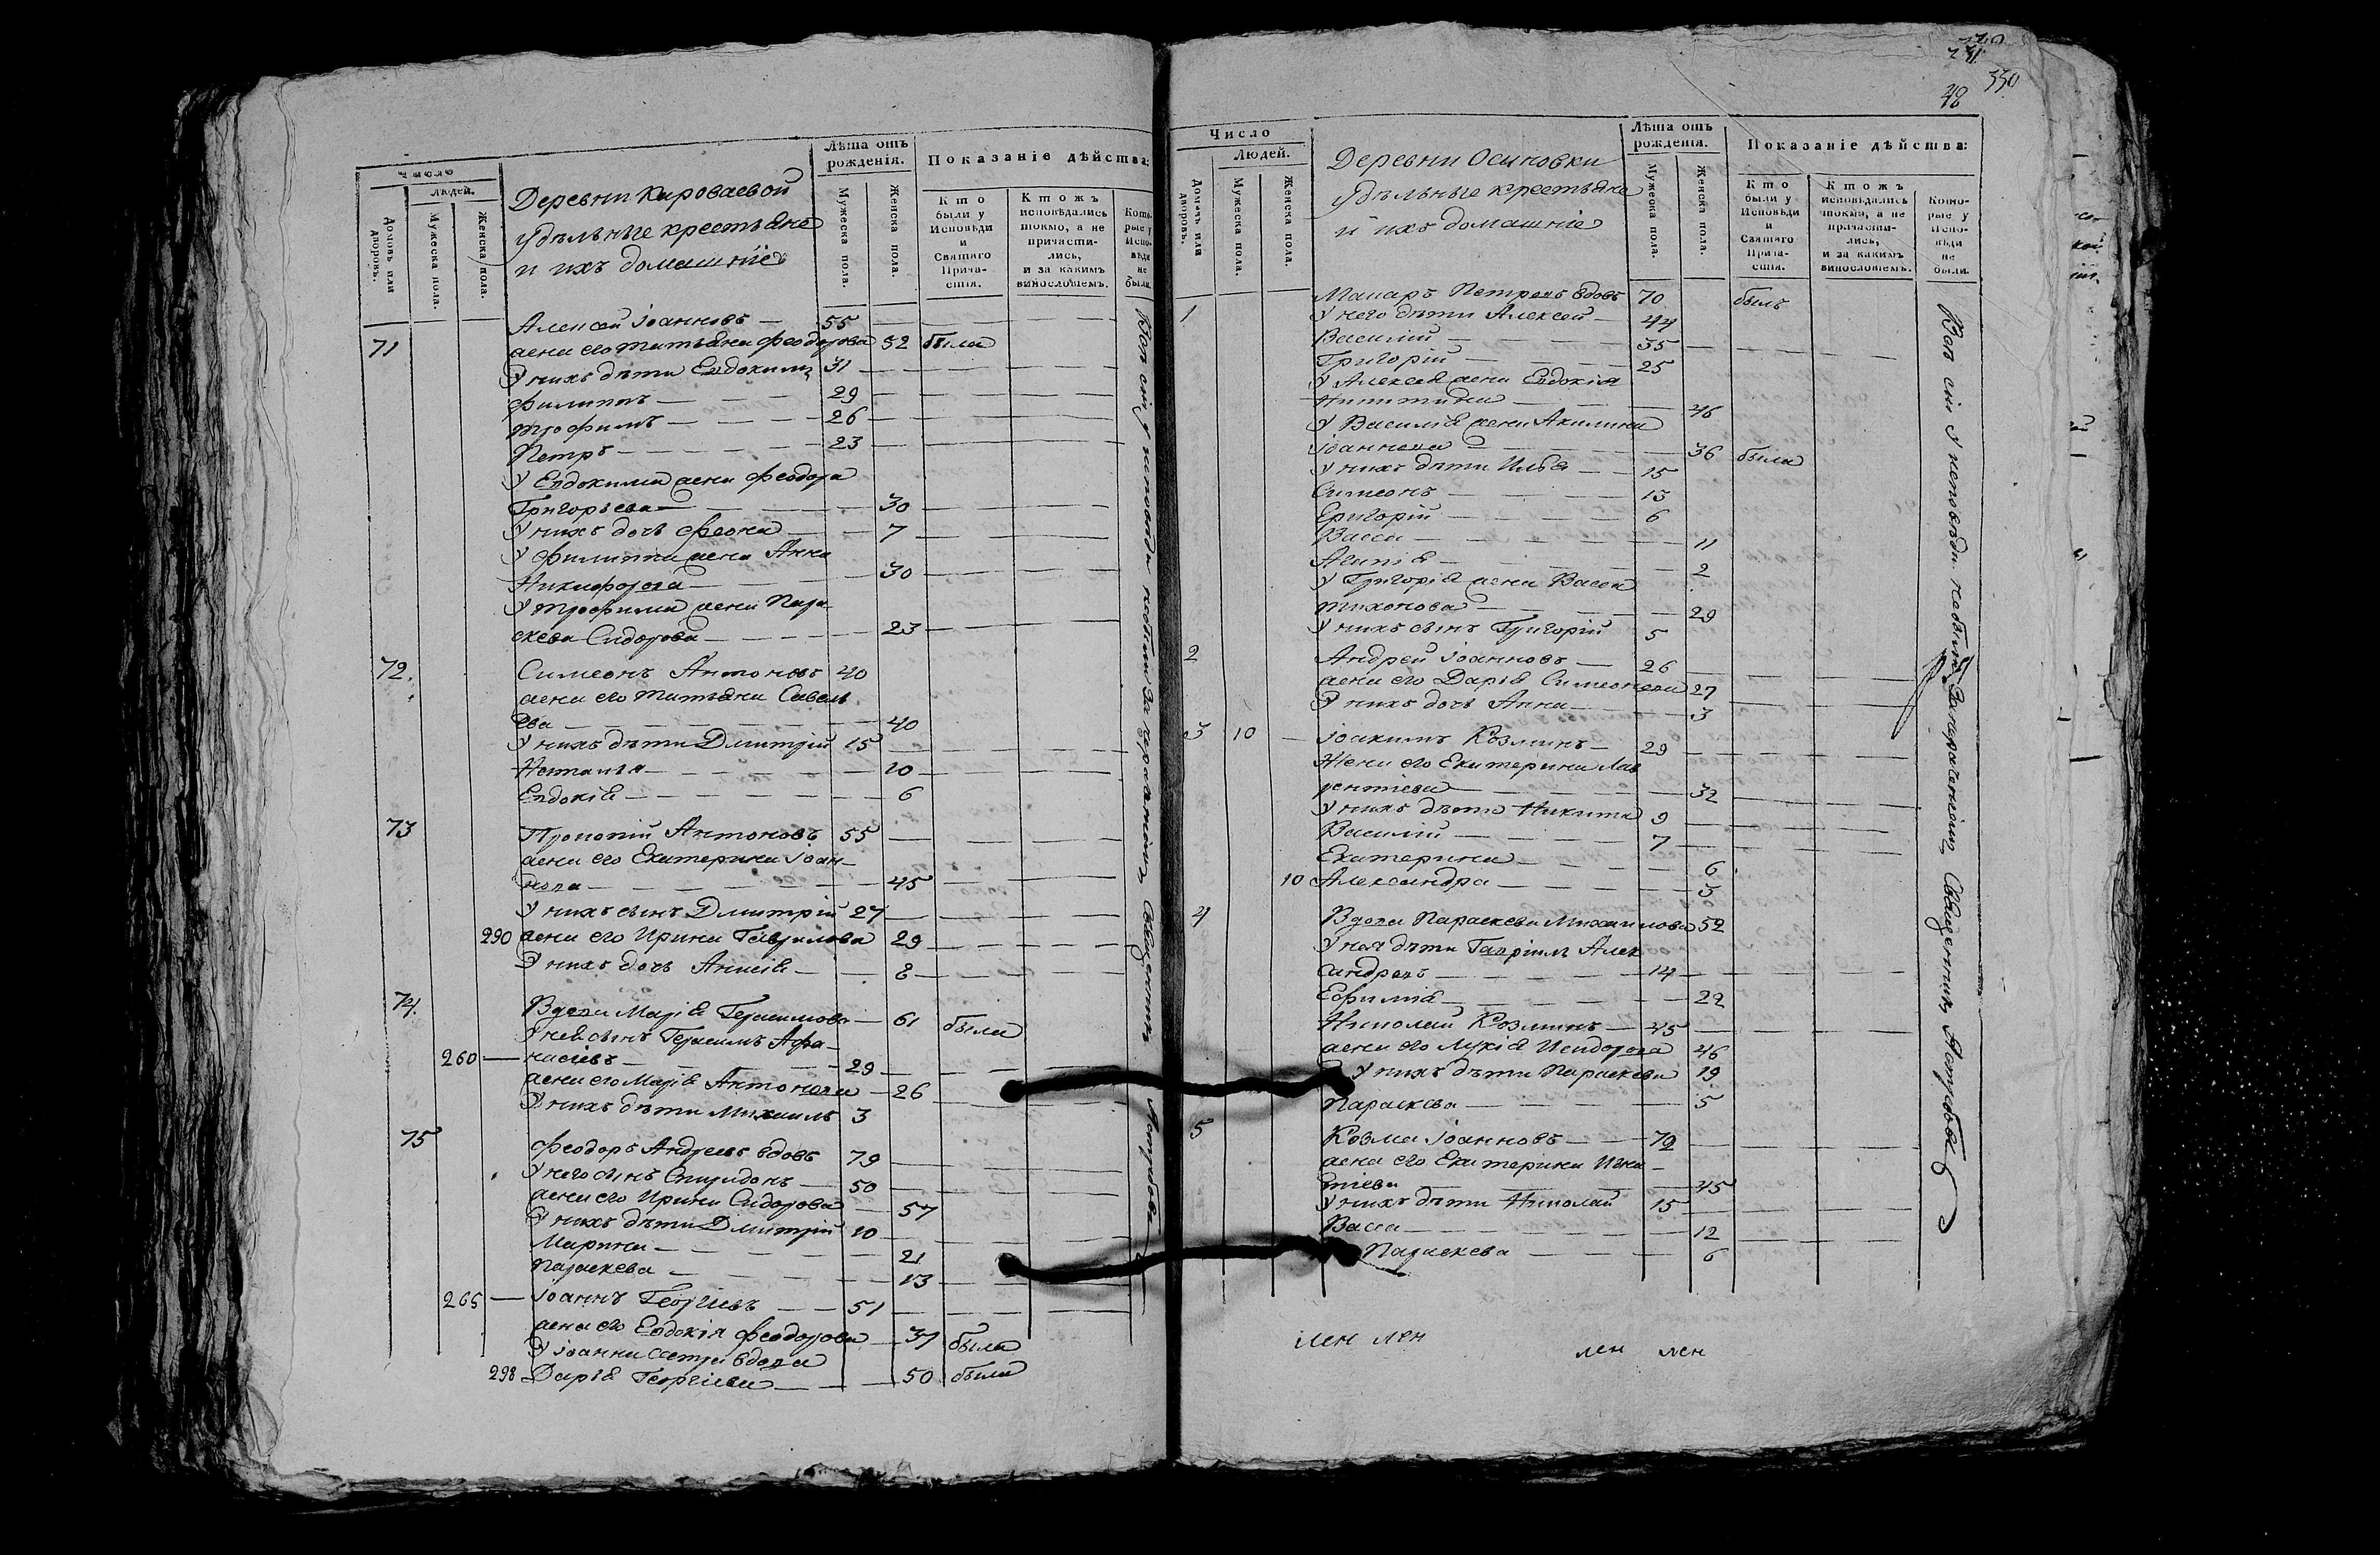 Число
Людей.
Домовъ или дворовъ.
Мужеска пола.
Женска пола.
Деревни Кароваевой
удѣльные крестьяне
и ихъ домашніе
Лѣта отъ рожденія.
Мужеска пола.
Женска пола.
Показаніе дѣйства:
Кто были у Исповѣди и Святаго Прича-стія.
Ктожъ исповѣдались токмо, а не причасти-лись, и за какимъ винословіемъ.
Кото-рые у Испо-вѣди не были.
71 Алексей Іоанновъ — 55
жена его Татьяна Феодорова 52 была
У нихъ дѣти Евдокимъ 31
Филиппъ — 29
Трофимъ — 26
Петръ — 23
У Евдокима жена Феодора
Григорьева — 30
У нихъ дочь Феона — 7
У Филиппа жена Анна
Никифорова — 30
У Трофима жена Пара-
скева Сидорова — 23
72. Симеонъ Антоновъ 40
жена его Татьяна Савель
ева — 40
У нихъ дѣти Дмитрій 15
Наталья — 10
Евдокія — 6
73 Прокопій Антоновъ 55
жена его Екатерина Іоан-
нова — 45
У нихъ сынъ Дмитрій 27
290 жена его Ирина Гаврилова 29
У нихъ дочь Анисія — 8
74. Вдова Марія Герасимова — 61 была
У ней сынъ Герасимъ Афа-
260 — насіевъ — 29
жена его Марія Антонова — 26
У нихъ дѣти Михаилъ 3
75 Феодоръ Андреевъ вдовъ 79
У него сынъ Спиридонъ — 50
жена его Ирина Сидорова — 57
У нихъ дѣти Дмитрій 10
Марина — 21
Параскева — 13
265 — Іоаннъ Георгіевъ — 51
жена его Евдокія Феодорова — 37 была
У Іоанна сестра вдова
298 Дарья Георгіева — 50 была
Всѣ сіи у исповѣди небыли За нерадениемъ Священникъ
48
330
Число
Людей.
Домовъ или дворовъ.
Мужеска пола.
Женска пола.
Деревни Осиновки
удѣльные крестьяне
и ихъ домашніе
Лѣта отъ рожденія.
Мужеска пола.
Женска пола.
Показаніе дѣйства:
Кто были у Исповѣди и Святаго Прича-стія.
Ктожъ исповѣдались токмо, а не причасти-лись, и за какимъ винословіемъ.
Кото-рые у Испо-вѣди не были.
1 Макаръ Петровъ вдовъ 70 былъ
У него дѣти Алексей — 44
Василій — 35
Григорій — 25
У Алексея жена Евдокія
Никитина — 46
У Василія жена Акилина
Іоаннова — 36 была
У нихъ дѣти Илья — 15
Симеонъ — 13
Григорій — 6
Васса — 11
— 2
У Григорія жена Васса
Тихонова — 29
У нихъ сынъ Григорій 5
2 Андрей Іоанновъ — 26
жена его Дарья Симеонова 27
У нихъ дочь Анна — 3
3 10 — Іоакимъ Козминъ — 29
Жена его Екатерина Лав
рентіева — 32
У нихъ дѣти Никита 9
Василій — 7
Екатерина — 6
10 Александра — 3
4 Вдова Параскева Михаилова 52
У нея дѣти Гавріилъ Алек
сандровъ — 14
Евфимія — 22
Николай Козминъ — 45
жена его Лукія Исидорова 46
У нихъ дѣти Параскева 19
Параскева — 5
5 Козма Іоанновъ — 72
жена его Екатерина Игна-
тіева — 45
У нихъ дѣти Николай 15
Васса — 12
Параскева — 6
Всѣ сіи у исповѣди небыли За нерадениемъ Священникъ
лен лен
лен лен